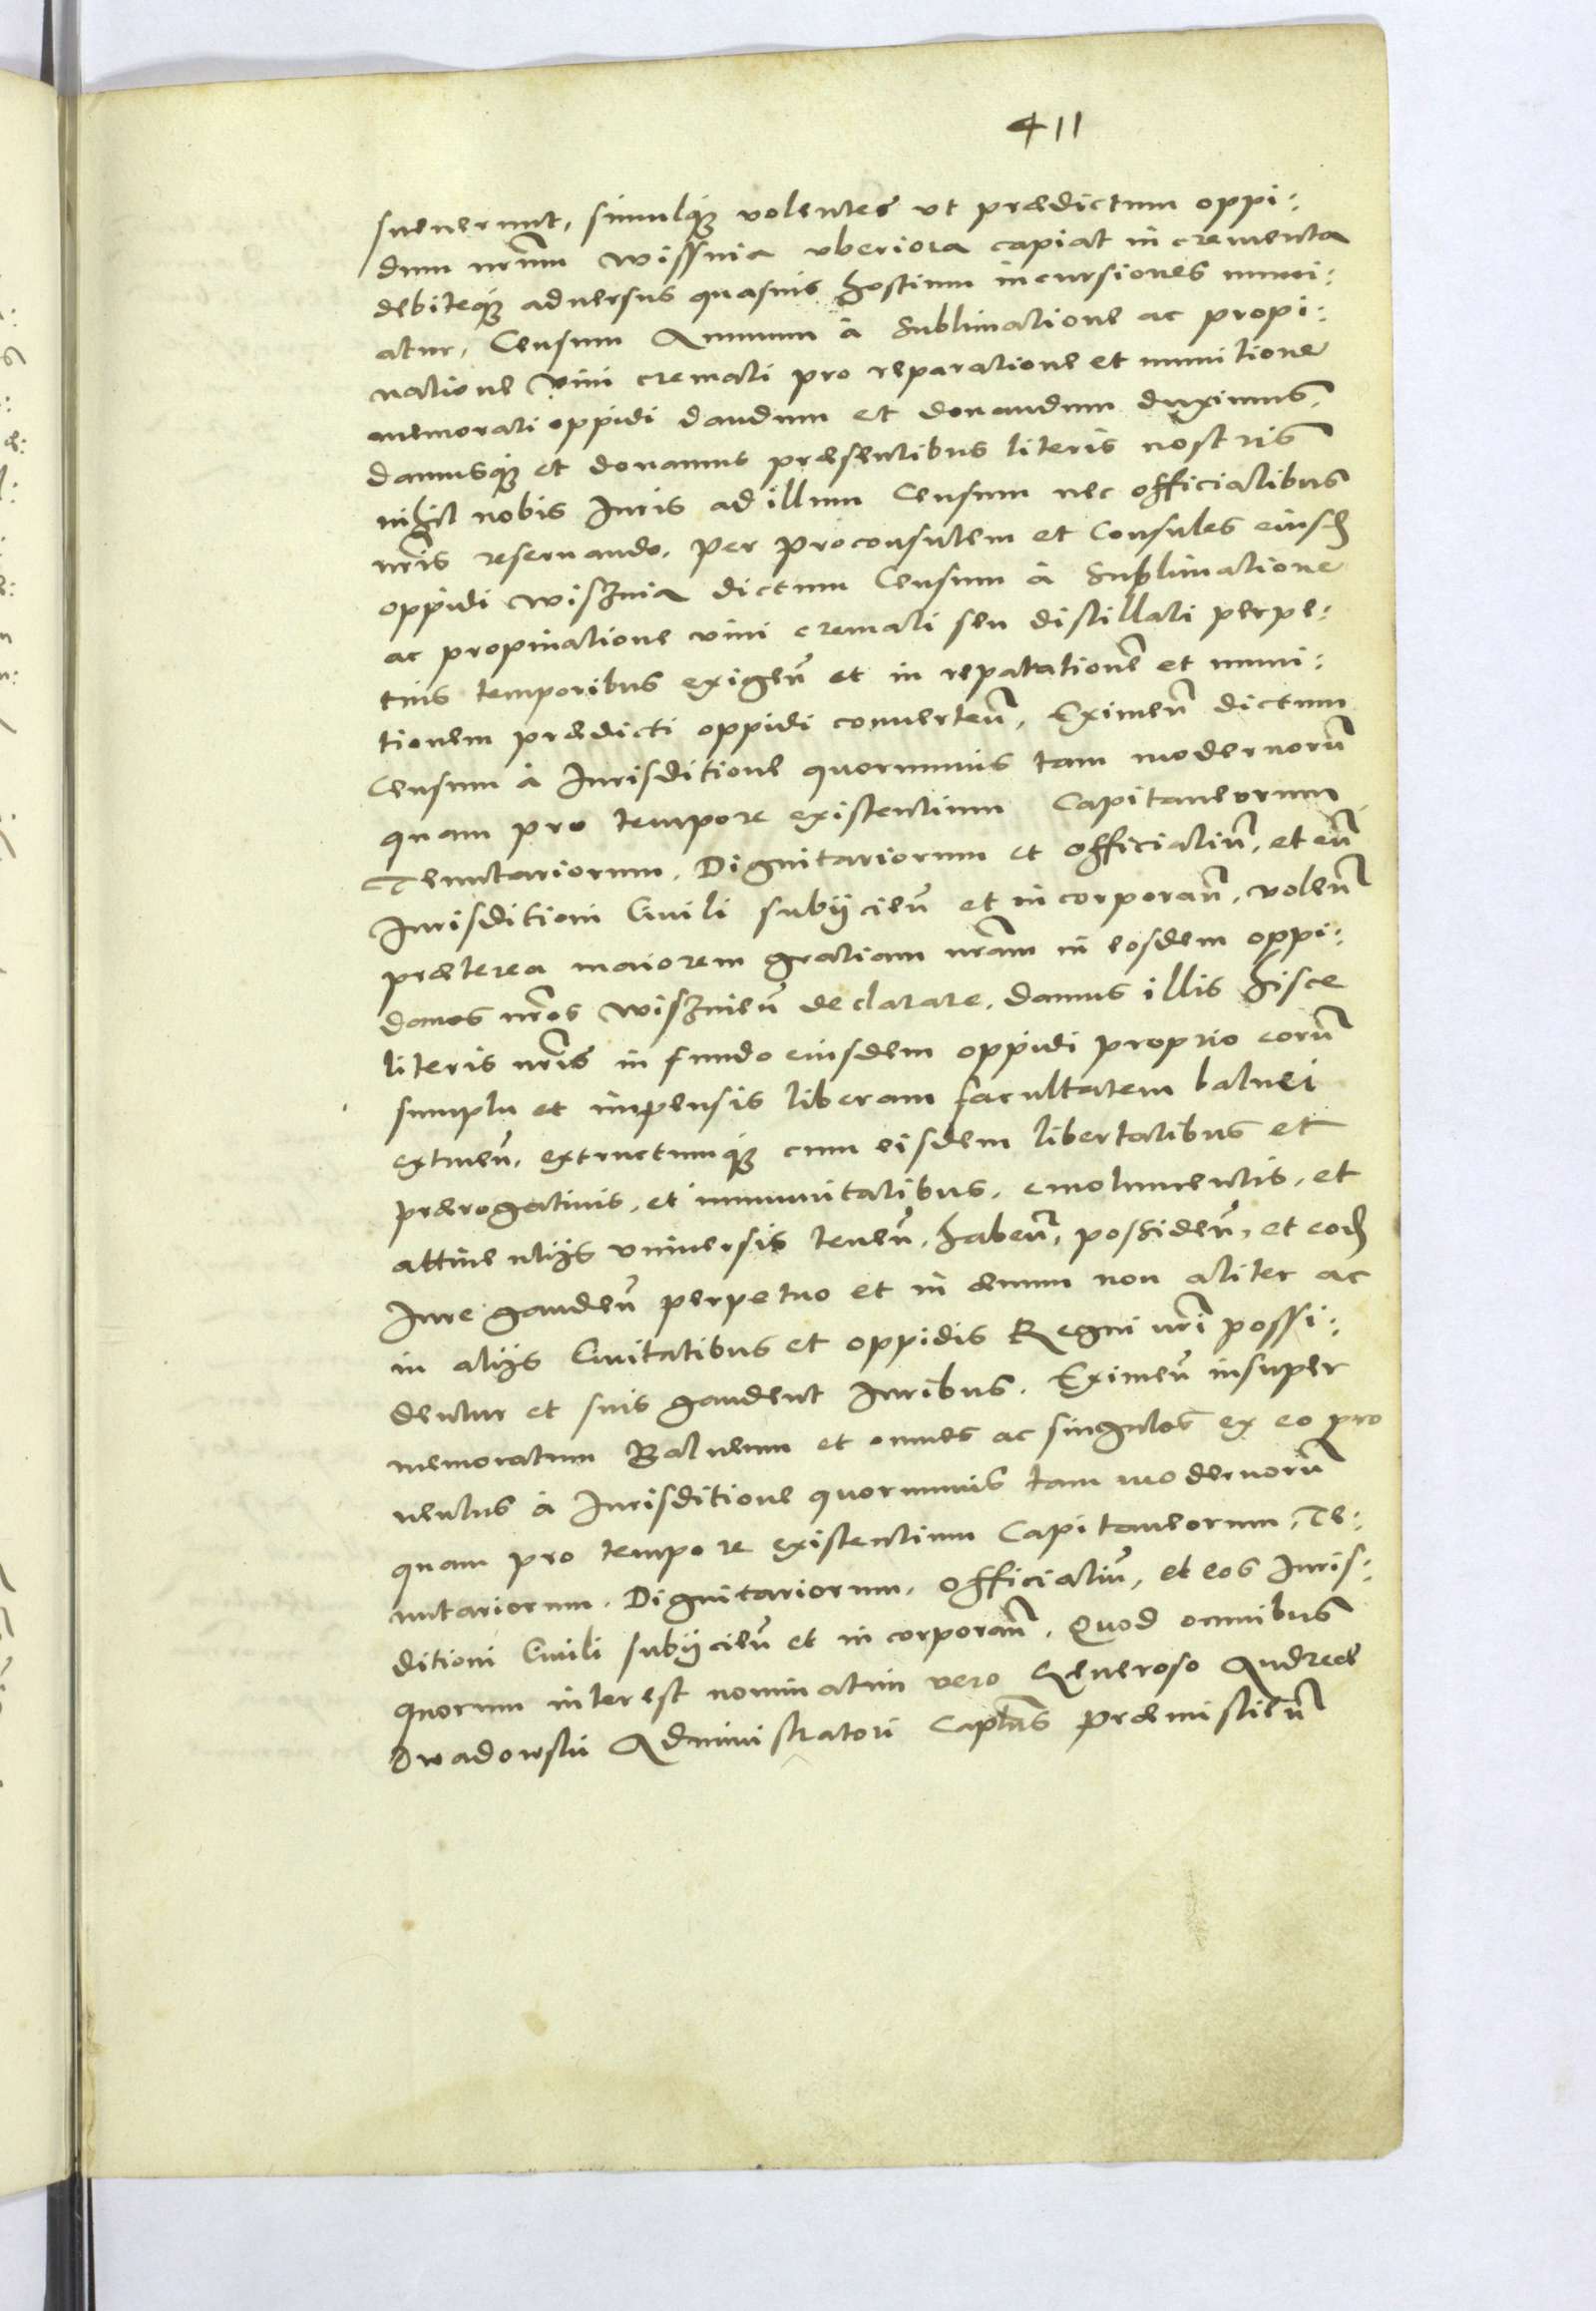 411
sueuerunt, simulque volentes vt prædictum oppi:
dum nrum Wissnia vberiora capiat incrementa
debiteque aduersus quasuis hostium incursiones muni:
atur, Censum Annuum à Sublimatione ac propi:
natione vini cremati pro reparatione et munitione
memorati oppidi dandum et donandum duximus,
damusque et donamus præsentibus literis nostris
nihil nobis Iuris ad illum Censum nec officialibus
nris reseruando. Per proconsulem et Consules eiusd
oppidi Wisznia dictum Censum à Sublimatione
ac propinatione vini cremati seu distillati perpe:
tuis temporibus exigen et in reparatione et muni:
tionem prædicti oppidi conuerten, Eximen dictum
Censum à Iurisditione quorumuis tam modernoru
quam pro tempore existentium Capitaneorum
Tenutariorum, Dignitariorum et officialiu, et eu
Iurisditioni Ciuili subijcien et incorporan, volen
præterea maiorem gratiam nram in eosdem oppi:
danos nros Wisznien declarare, damus illis hisce
literis nris in fundo eiusdem oppidi proprio eoru
sumptu et impensis liberam facultatem balnei
extruen, extructumque cum eisdem libertatibus et
prærogatiuis, et immunitatibus, emolumentis, et
attinentijs vniuersis tenen, haben, possiden, et eod
Iure gauden perpetuo et in æuum non aliter ac
in alijs Ciuitatibus et oppidis Regni nri possi:
dentur et suis gaudent Iuribus. Eximen insuper
memoratum Balneum et omnes ac singulos ex eo pro
uentus à Iurisditione quorumuis tam modernoru
quam pro tempore existentium Capitaneorum, Te:
nutariorum, Dignitariorum, officialiu, et eos Iuris:
ditioni Ciuili subijcien et incorporan. Quod omnibus
quorum interest nominatim vero Generoso Andreæ
Administratori Captus Præmislien